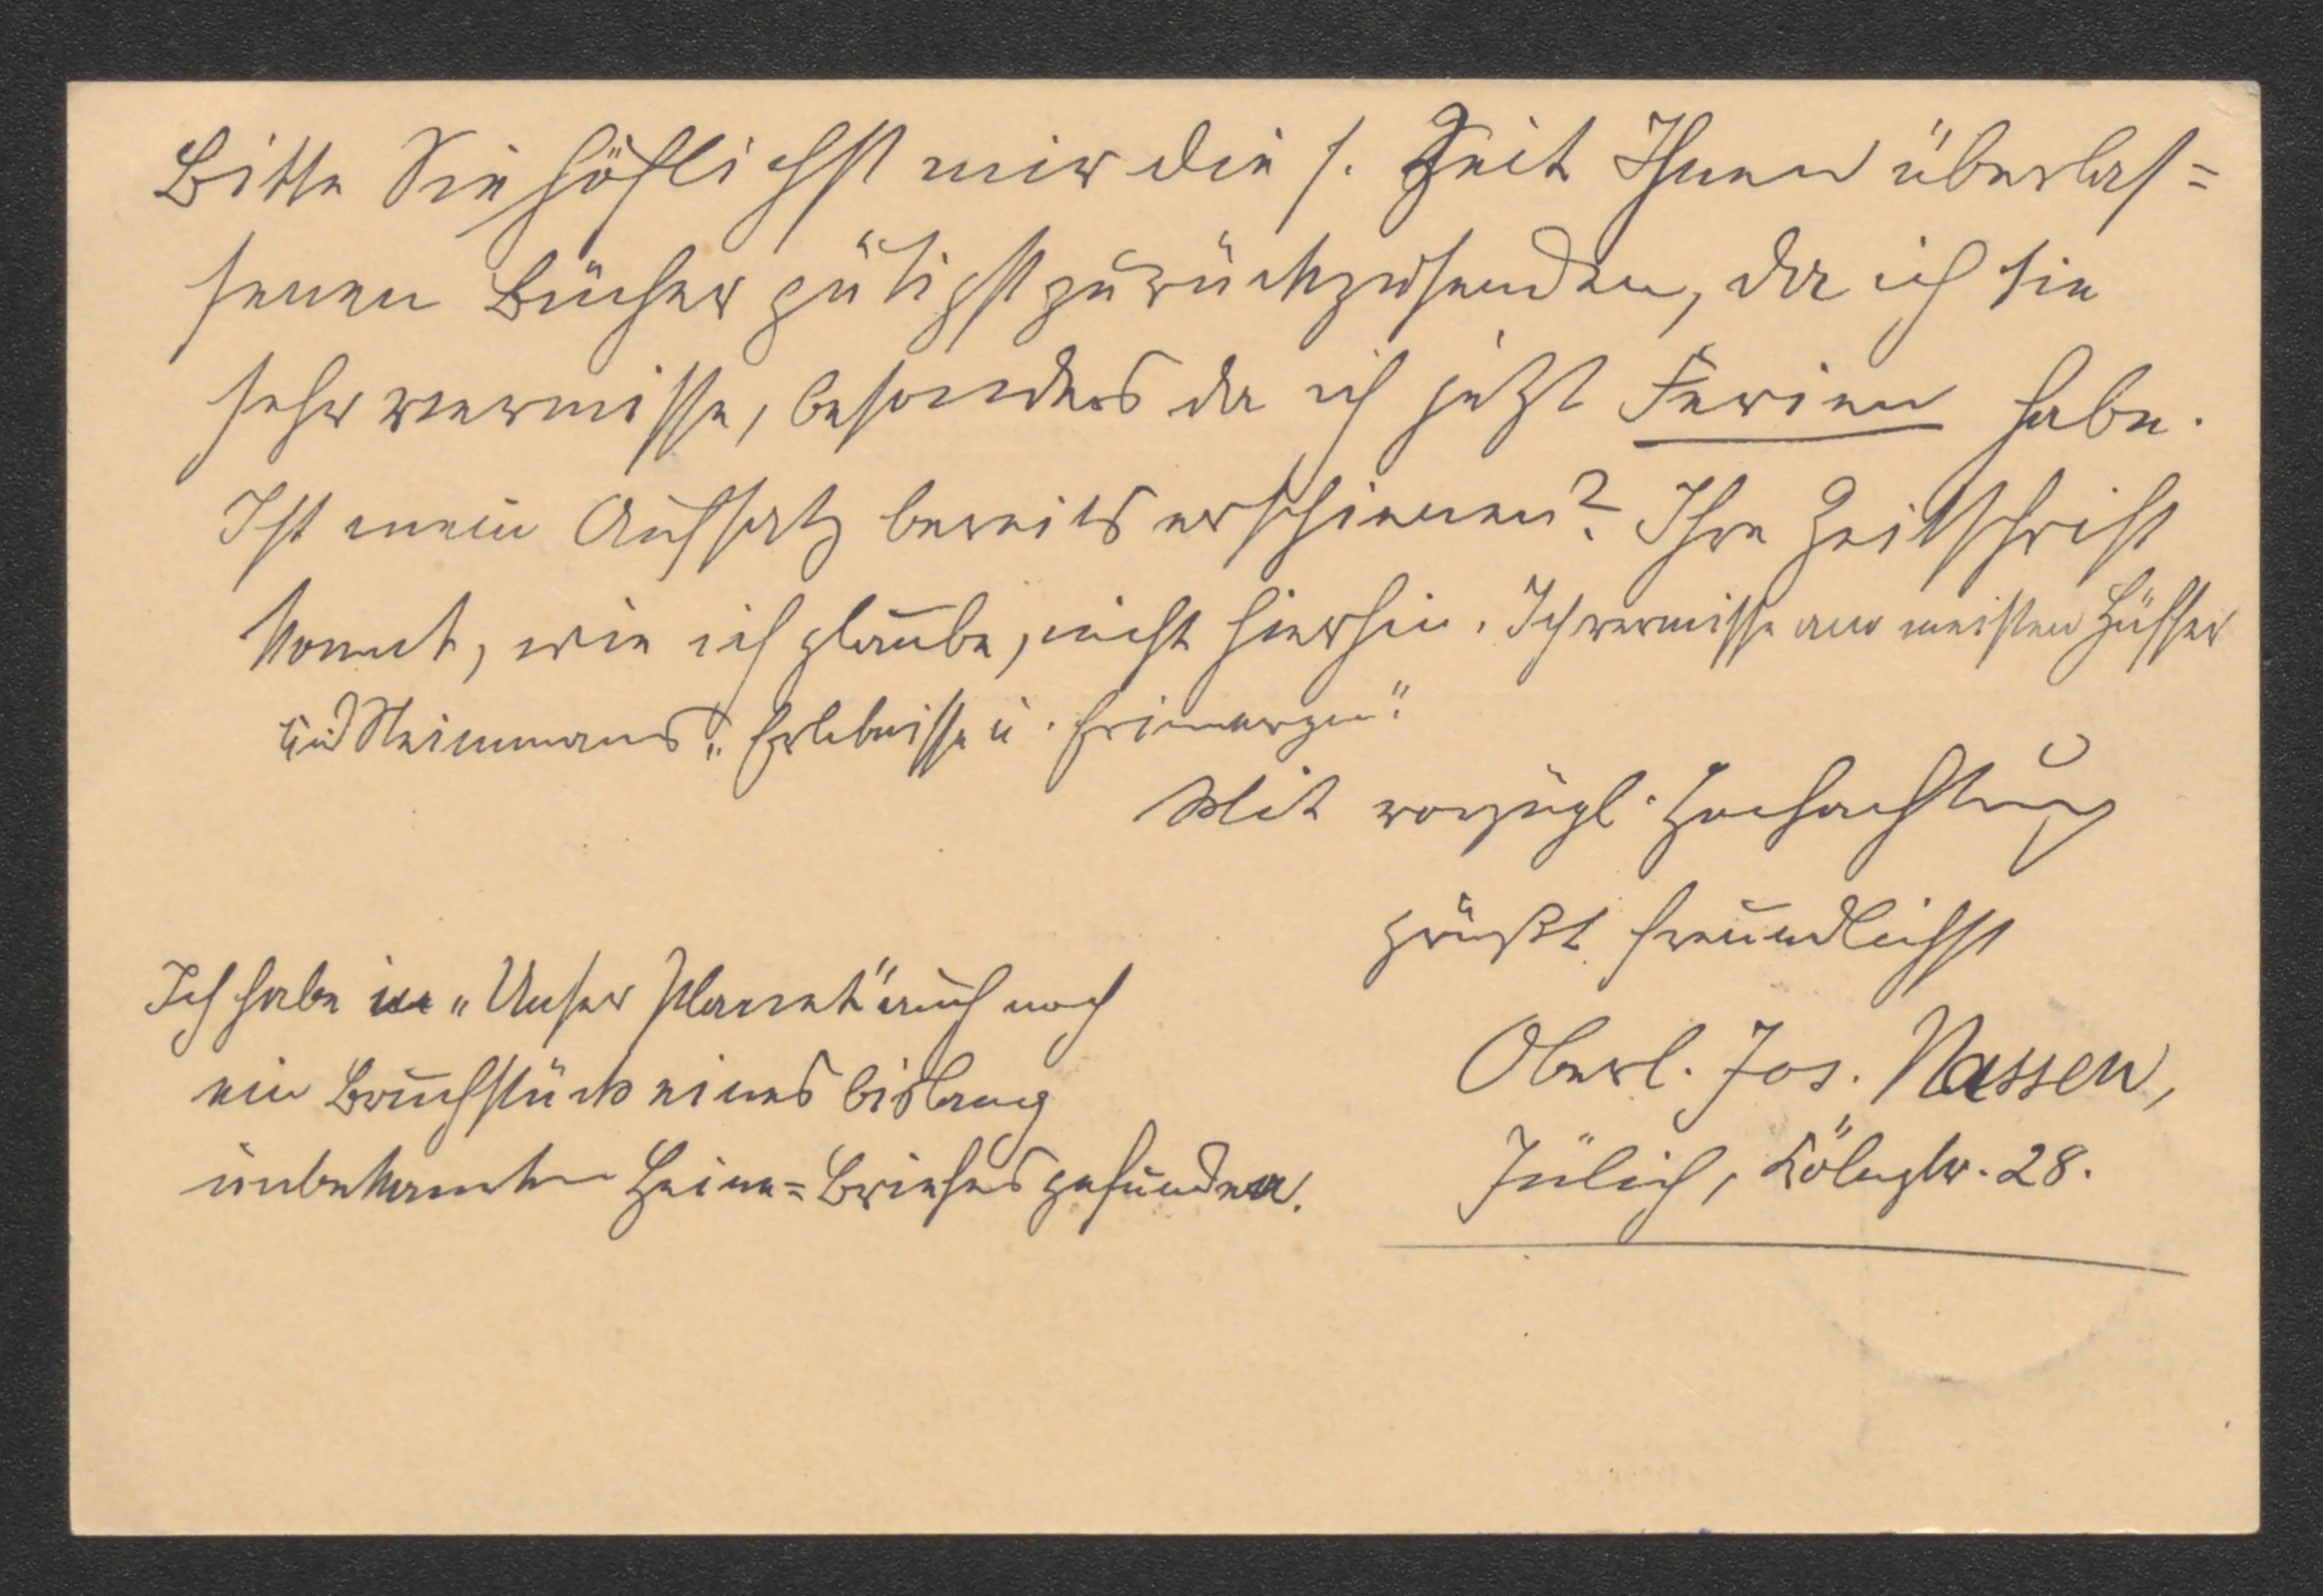 Bitte Sie höflichst mir die s. Zeit Ihnen überlas=
senen Bücher gütigst zurückzusenden, da ich sie
sehr vermisse, besonders da ich jetzt Ferien habe.
Ist mein Aufsatz bereits erschienen? Ihre Zeitschrift
kommt, wie ich glaube, nicht hierhin. Ich vermisse am meisten Hüffer
und Steinmanns „Erlebnisse u.
Mit vorzügl. Hochachtung
grüßt freundlichst
Oberl. Jos. Nassen,
Jülich, Kölnstr. 28.
Ich habe in „Unser Planet" auch noch
ein Bruchstück eines bislang
unbekannten Heine=Briefes gefunden.